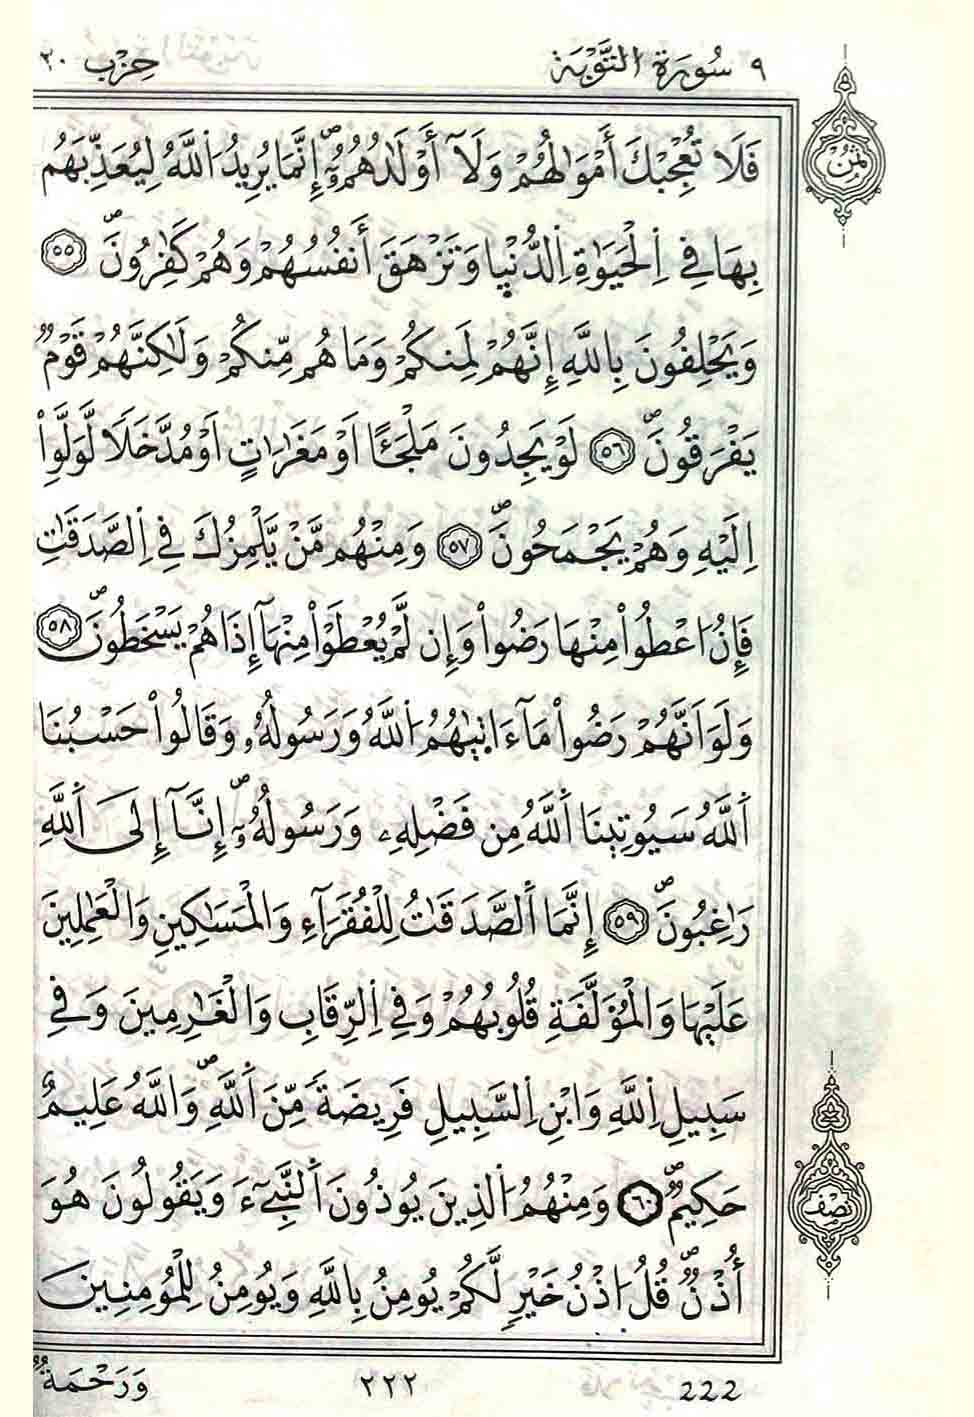 ٩ سُورَةُ التَّوْبَة حِزْب ٢٠
فَلَا تُعْجِبْكَ أَمْوَٰلُهُمْ وَلَآ أَوْلَٰدُهُمُۥٓ إِنَّمَا يُرِيدُ اُ۬للَّهُ لِيُعَذِّبَهُم
ثمن
بِهَا فِے اِ۬لْحَيَوٰةِ اِ۬لدُّنْي۪ا وَتَزْهَقَ أَنفُسُهُمْ وَهُمْ كَٰفِرُونَۖ ٥٥
وَيَحْلِفُونَ بِاللَّهِ إِنَّهُمْ لَمِنكُمْ وَمَا هُم مِّنكُمْ وَلَٰكِنَّهُمْ قَوْمٞ
يَفْرَقُونَۖ ٥٦ لَوْ يَجِدُونَ مَلْجَـًٔا اَوْ مَغَٰرَٰتٍ اَوْ مُدَّخَلٗا لَّوَلَّوِاْ
اِلَيْهِ وَهُمْ يَجْمَحُونَۖ ٥٧ وَمِنْهُم مَّنْ يَّلْمِزُكَ فِے اِ۬لصَّدَقَٰتِ
فَإِنُ اعْطُواْ مِنْهَا رَضُواْ وَإِن لَّمْ يُعْطَوْاْ مِنْهَآ إِذَا هُمْ يَسْخَطُونَۖ ٥٨
وَلَوَ اَنَّهُمْ رَضُواْ مَآ ءَات۪يٰهُمُ اُ۬للَّهُ وَرَسُولُهُۥ وَقَالُواْ حَسْبُنَا
اَ۬للَّهُ سَيُوتِينَا اَ۬للَّهُ مِن فَضْلِهِۦ وَرَسُولُهُۥٓۖ إِنَّآ إِلَي اَ۬للَّهِ
رَٰغِبُونَۖ ٥٩ إِنَّمَا اَ۬لصَّدَقَٰتُ لِلْفُقَرَآءِ وَالْمَسَٰكِينِ وَالْعَٰمِلِينَ
عَلَيْهَا وَالْمُؤَلَّفَةِ قُلُوبُهُمْ وَفِے اِ۬لرِّقَابِ وَالْغَٰرِمِينَ وَفِے
سَبِيلِ اِ۬للَّهِ وَابْنِ اِ۬لسَّبِيلِ فَرِيضَةٗ مِّنَ اَ۬للَّهِۖ وَاللَّهُ عَلِيمٌ
حَكِيمٞۖ ٦٠ وَمِنْهُمُ اُ۬لذِينَ يُوذُونَ اَ۬لنَّبِےٓءَ وَيَقُولُونَ هُوَ
نصف
أُذْنٞۖ قُلُ اذْنُ خَيْرٖ لَّكُمْ يُومِنُ بِاللَّهِ وَيُومِنُ لِلْمُومِنِينَ
وَرَحْمَةٞ
222 ٢٢٢